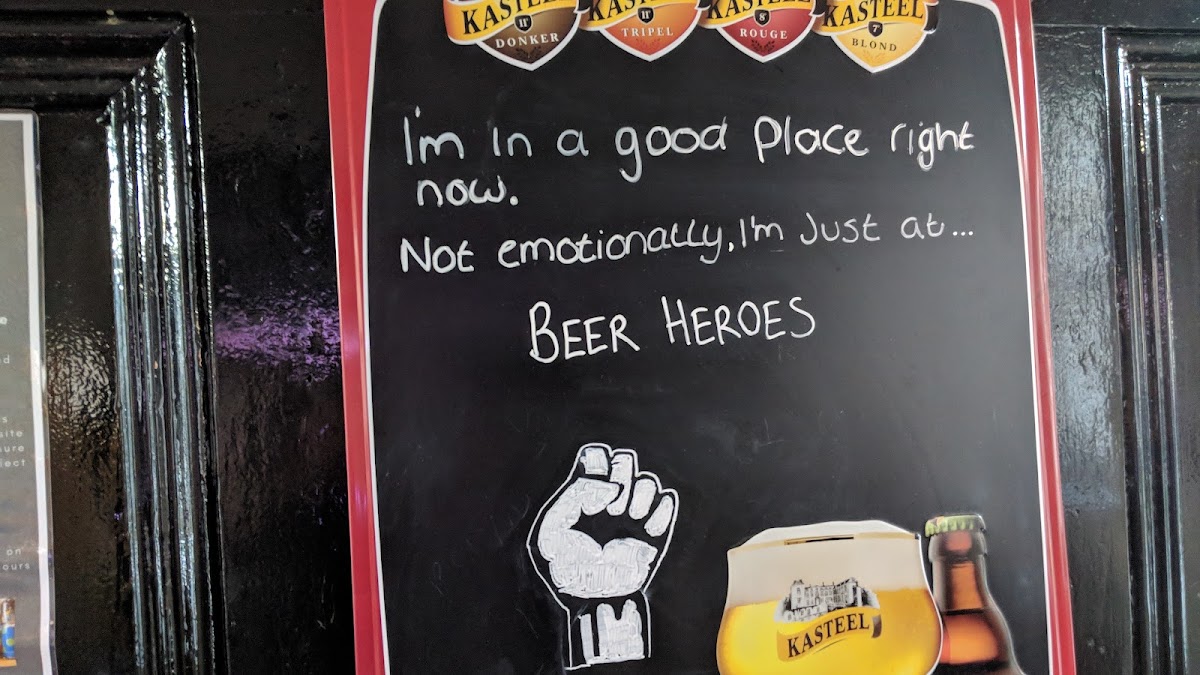 KASTEEL KASTEEL KASTEEL KASTEEL
11° 11° 8° 7°
DONKER TRIPEL ROUGE BLOND
I'm in a good Place right
now.
Not emotionally, I'm Just at...
BEER HEROES
KASTEEL
site
on
ours